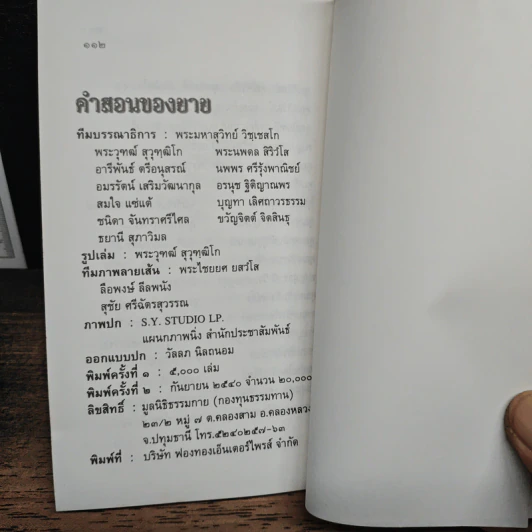 ๑๑๒
คำสอนของยาย
ทีมบรรณาธิการ : พระมหาสุวิทย์ วิชฺเชสโก
พระวุฑฒ์ สุวุฑฺฒิโก พระนพดล สิริวํโส
อารีพันธ์ ตรีอนุสรณ์ นพพร ศรีรุ้งพาณิชย์
อมรรัตน์ เสริมวัฒนากุล อรนุช ฐิติญาณพร
สมใจ แซ่แต้ บุญทา เลิศถาวรธรรม
ชนิตา จันทราศรีไศล ขวัญจิตต์ จิตสินธุ
ธยานี สุภาวิมล
รูปเล่ม : พระวุฑฒ์ สุวุฑฺฒิโก
ทีมภาพลายเส้น : พระไชยยศ ยสวํโส
ลือพงษ์ ลีลพนัง
สุชัย ศรีฉัตรสุวรรณ
ภาพปก : S.Y. STUDIO LP.
แผนกภาพนิ่ง สำนักประชาสัมพันธ์
ออกแบบปก : วัลลภ นิลถนอม
พิมพ์ครั้งที่ ๑ : ๕,๐๐๐ เล่ม
พิมพ์ครั้งที่ ๒ : กันยายน ๒๕๔๐ จำนวน ๒๐,๐๐๐
ลิขสิทธิ์ : มูลนิธิธรรมกาย (กองทุนธรรมทาน)
๒๓/๒ หมู่ ๗ ต.คลองสาม อ.คลองหลวง
จ.ปทุมธานี โทร.๕๒๔๐๒๕๗-๖๓
พิมพ์ที่ : บริษัท ฟองทองเอ็นเตอร์ไพรส์ จำกัด